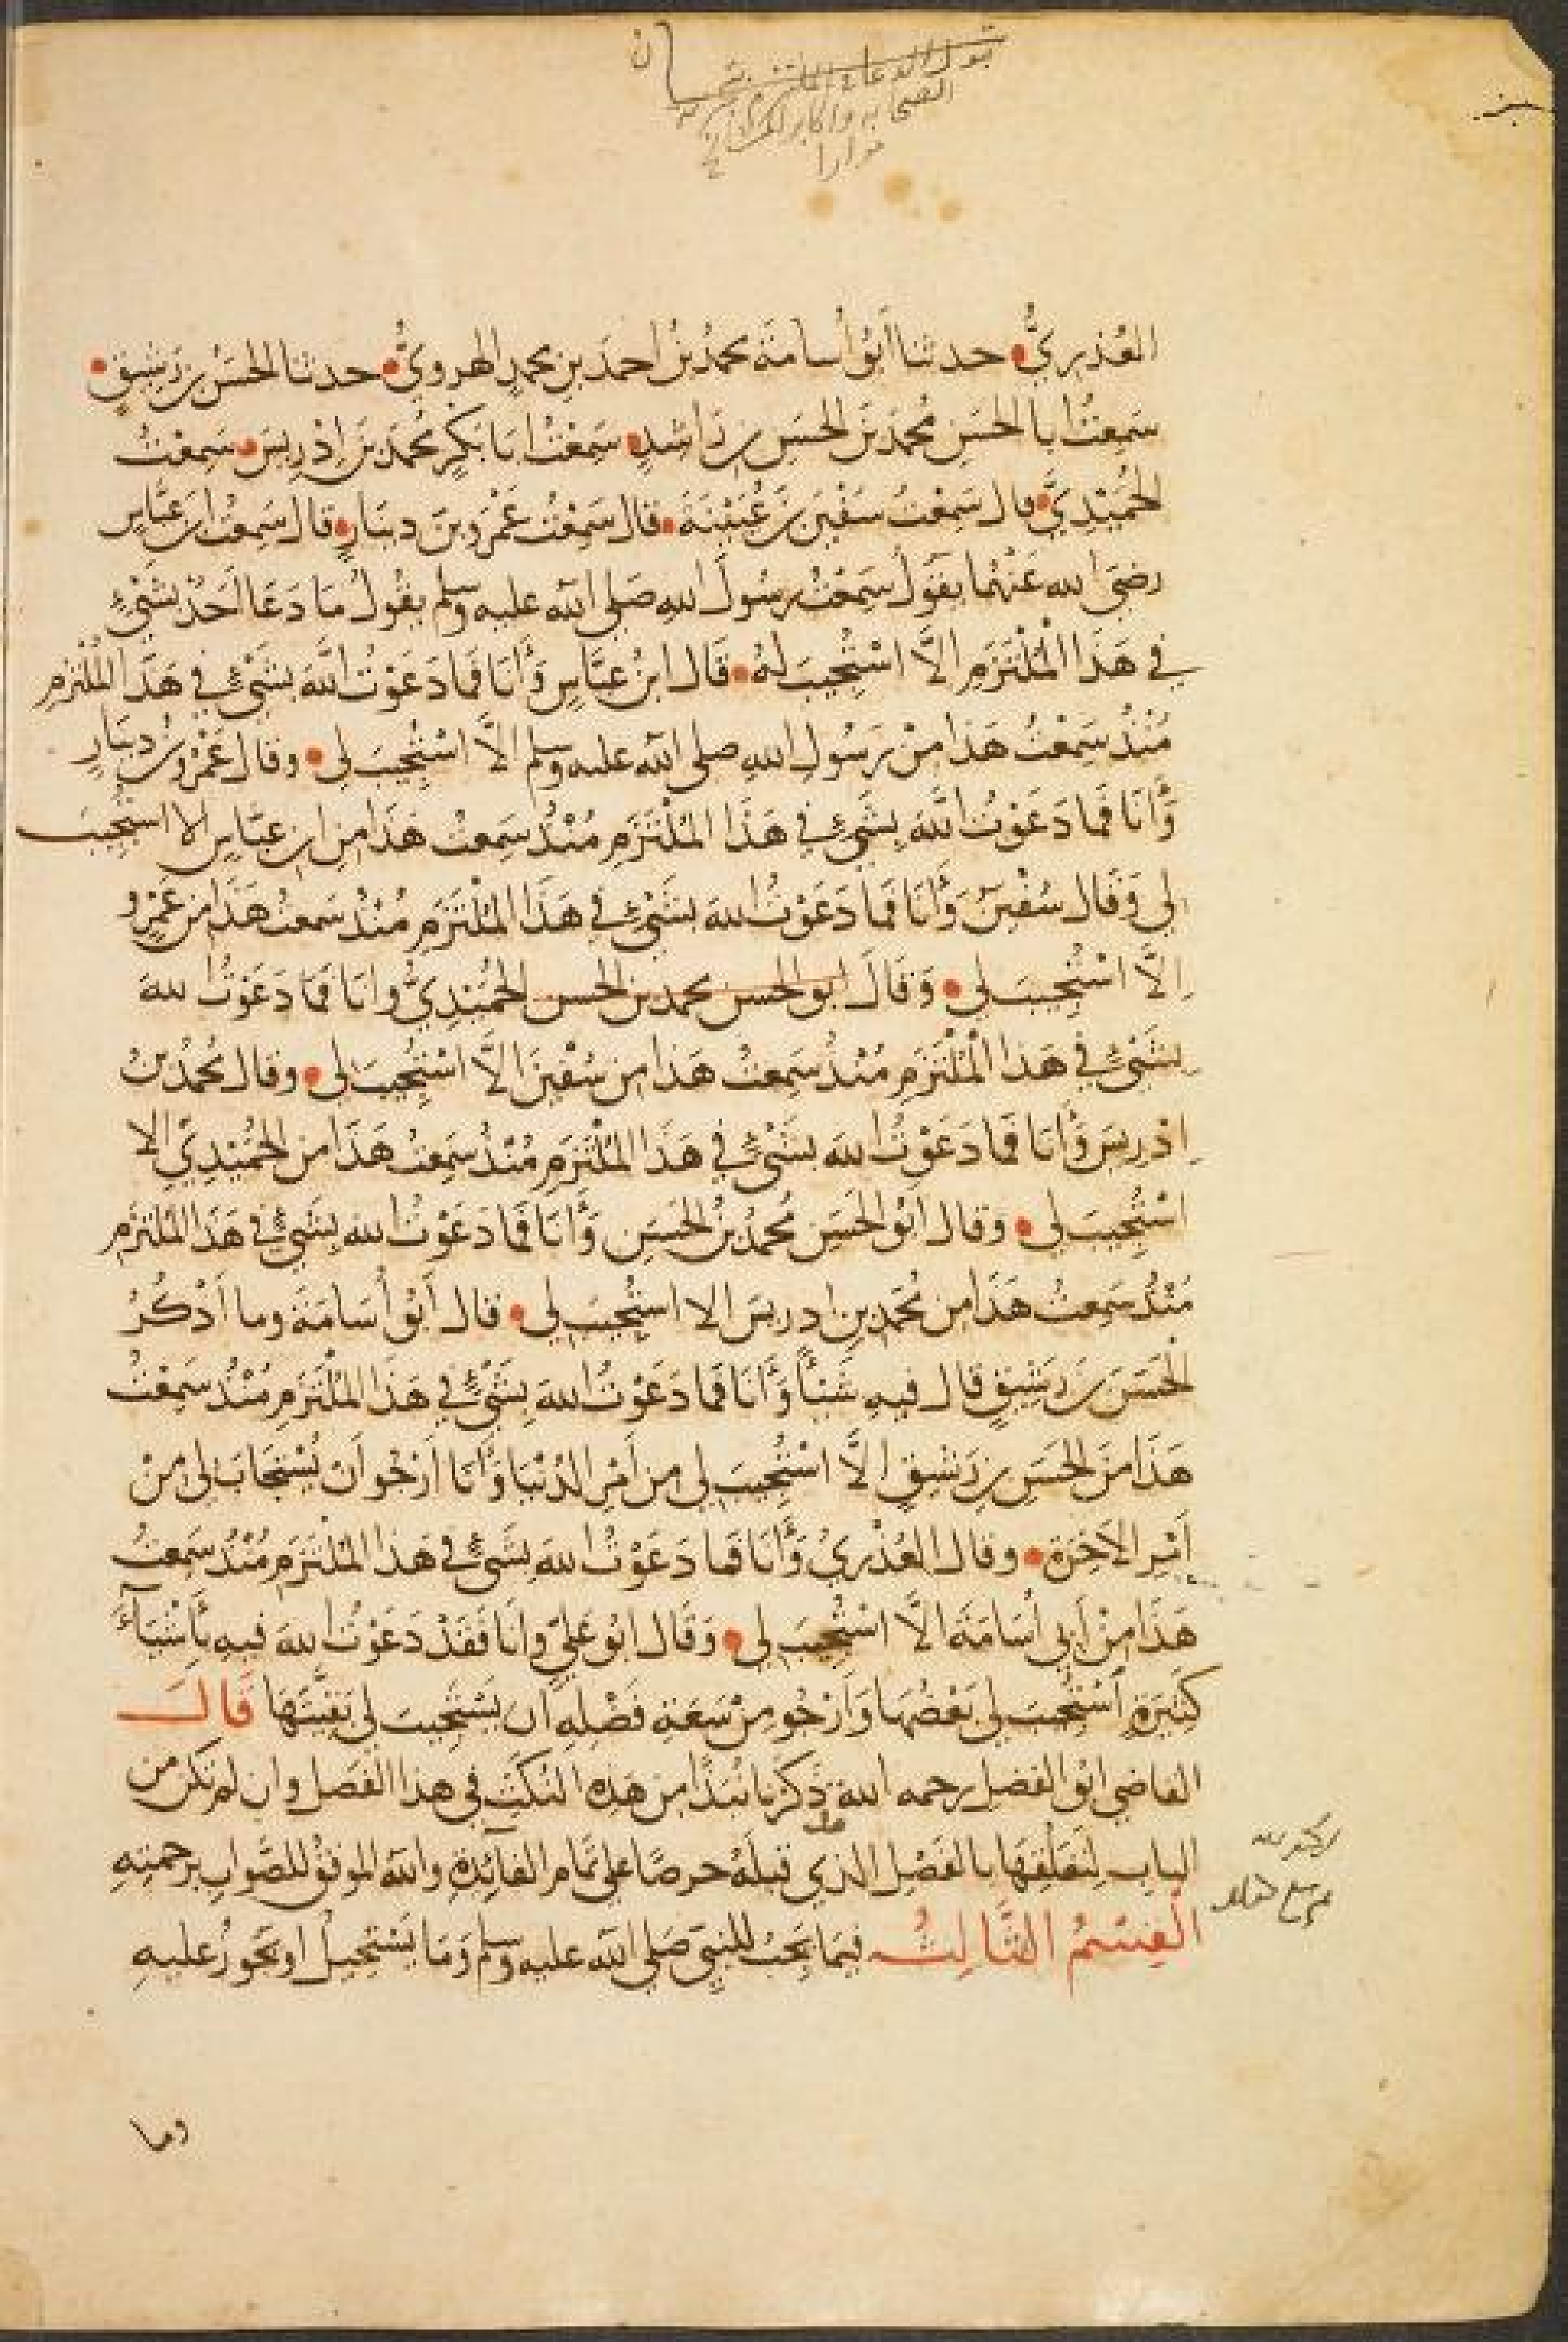 قبول الدعاء
الصحابه واكابر
مرارا
العُذريُّ • حدثنا اَبُو اُسامَةَ محمدُ بنُ احمدَ بنِ محمدٍ الهرويُّ • حدثنا الحسَنُ بن رَشِيقٍ •
سَمِعْتُ ابا الحسَنِ محمدَ بنَ الحسَنِ بن رَاشدٍ • سَمِعْتُ ابَا بَكرٍ محمدَ بنَ اِدْرِيسَ • سَمِعْتُ
الحُمَيْدِيَّ • قال سَمِعْتُ سُفْيَنَ بنَ عُيَيْنَةَ • قال سَمِعْتُ عَمْرَو بنَ دِينَارٍ • قال سَمِعتُ ابنَ عَبَّاسٍ
رضيَ الله عَنْهُما يقُولُ سَمِعْتُ رسُولَ اللهِ صَلى الله عليه وسلم يقُولُ مَا دَعَا اَحَدٌ بشَيْءٍ
في هَذَا الْمُلْتَزَمِ الَّا اسْتُجِيبَ لهُ • قَالَ ابنُ عبَّاسٍ وَأنَا فَمَا دَعَوْتُ اللَّهَ بشَيْءٍ في هَذَا الْمُلْتزَمِ
مُنْذُ سَمِعْتُ هَذَا مِنْ رَسُولِ اللهِ صلى الله عليه وسلم الَّا اسْتُجِيبَ لي • وقال عَمْرُو بنُ دِينَارٍ
وَأنَا فَما دَعَوْتُ اللَّهَ بِشَيْءٍ في هَذَا الْمُلْتَزَمِ مُنْذُ سَمِعتُ هَذَا مِن ابن عبَّاسٍ الا استُجِيبَ
لي وَقَال سُفْيَنُ وَأنَا فَما دَعَوْتُ اللهَ بشَيْءٍ في هَذَا الْمُلْتَزَمِ مُنْذُ سَمعتُ هَذَا من عَمْرٍو
الَّا اسْتُجِيبَ لي • وَقَالَ ابو الحسن محمد بن الحسن الحُمَيْدِيُّ وانَا فَمَا دَعَوْتُ اللهَ
بشَيْءٍ في هَذَا الْمُلْتَزَمِ مُنْذُ سَمِعتُ هَذَا من سُفْيَنَ الَّا اسْتُجِيبَ لي • وقال مُحَمدُ بنُ
اِدْرِيسَ وَأنَا فَمَا دَعَوْتُ اللهَ بشَيْءٍ في هَذَا الْمُلْتَزَمِ مُنْذُ سَمِعتُ هَذَا من الحُمَيْدِيِّ الا
اسْتُجِيبَ لي • وقال ابُو الحَسَنِ مُحَمدُ بنُ الحَسَنِ وَأنَا فَمَا دَعَوْتُ اللهَ بِشَيْءٍ في هَذَا الْمُلتَزَمِ
مُنْذُ سَمِعتُ هَذَا من مُحَمدِ بنِ ادرِيسَ الا استُجِيبَ لي • قال اَبُو اُسَامَةَ وما اَذْكُرُ
الحَسَنَ بنَ رَشِيقٍ قال فيهِ شَيْأً وَأنَا فَمَا دَعَوْتُ اللهَ بِشَيْءٍ في هَذَا الْمُلْتَزَمِ مُنْذُ سَمِعْتُ
هَذَا مِنَ الحَسَنِ بنِ رَشِيقٍ الَّا اسْتُجِيبَ لي مِن اَمْرِ الدُنْيَا وَأنَا اَرْجُو اَنْ يُسْتَجَابَ لي مِنْ
اَمْرِ الآخِرَةِ • وقال العُذْريُّ وَأنَا فَما دَعَوْتُ اللهَ بِشَيْءٍ في هَذَا الْمُلْتَزَمِ مُنْذُ سَمِعْتُ
هَذَا مِنْ اَبي اُسَامَةَ الَّا اسْتُجِيبَ لي • وَقَال ابُو عَلِيٍّ وانَا فَقَدْ دَعَوْتُ اللهَ فيهِ بأَشْيَآءَ
كَثِيرَةٍ اسْتُجِيبَ لي بَعْضُهَا وَاَرْجُو مِنْ سَعَةِ فَضْلِهِ ان يَسْتَجِيبَ لي بَقِيَّتَهَا قَالَ
القاضي ابُو الفضلِ رحمه الله ذَكَرْنا نُبَذًا مِن هَذِه النُكَتِ في هذا الفَصلِ وان لم تكن من
البابِ لِتَعَلُّقِهَا بالفَصْلِ الذي قبلَهُ حرصًا على تَمَام الفائدةِ والله الموفقُ للصَّوابِ برحمتِهِ
القِسْمُ الثَّالِثُ فيمَا يَجِبُ للنبيِّ صَلى الله عليه وسلم وَمَا يَسْتَحِيلُ او يَجُوزُ عليهِ
وما